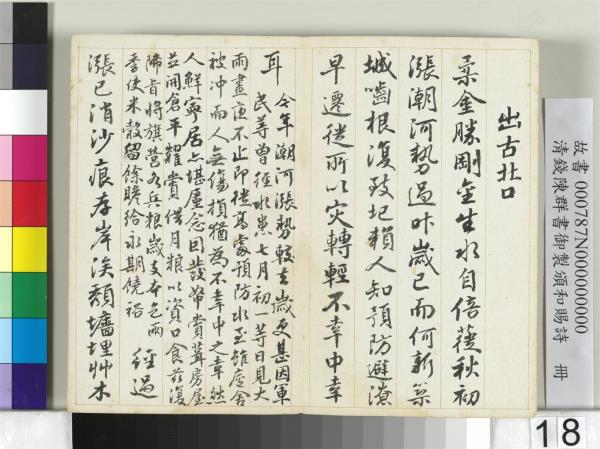 出古北口
柔金勝剛金生水自倍蓰秋初
漲潮河勢過昨歲已而何新築
城嚙根復致圮賴人知預防避潰
早遷徙所以灾轉輕不幸中幸
耳 今年潮河漲勢較去歲更甚因軍
民等曾經水患七月初一等日見大
雨晝夜不止即徙高處預防水至雖廬舍
被冲而人無傷損猶為不幸中之幸然
人鮮寧居亦堪廑念因發帑賞葺房屋
並開倉平糶賞借月粮以資口食茲復
降旨將旗營各兵粮歲支本色兩
季使米穀留餘贍給永期饒裕 經過
漲已消沙痕存岸涘頹壚埋艸木
故書 000787N000000000
清錢陳群書御製頒和賜詩 冊
18